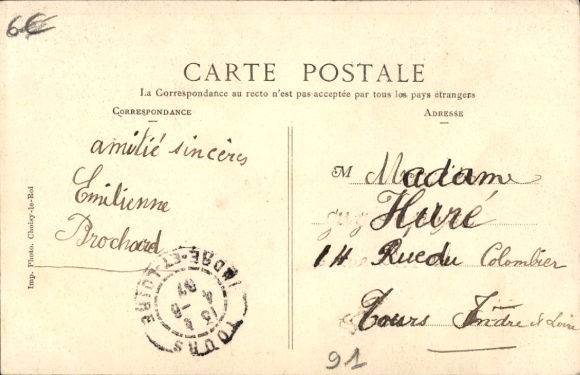 6€
CARTE POSTALE
La Correspondance au recto n'est pas acceptée par tous les pays étrangers
CORRESPONDANCE
ADRESSE
amitié sincères
Emilienne
Brochard
M Madame
Huré
14 Rue du Colombier
Tours Indre et Loire
TOURS
INDRE-ET-LOIRE
Imp. Photo. Choisy-le-Roi
91